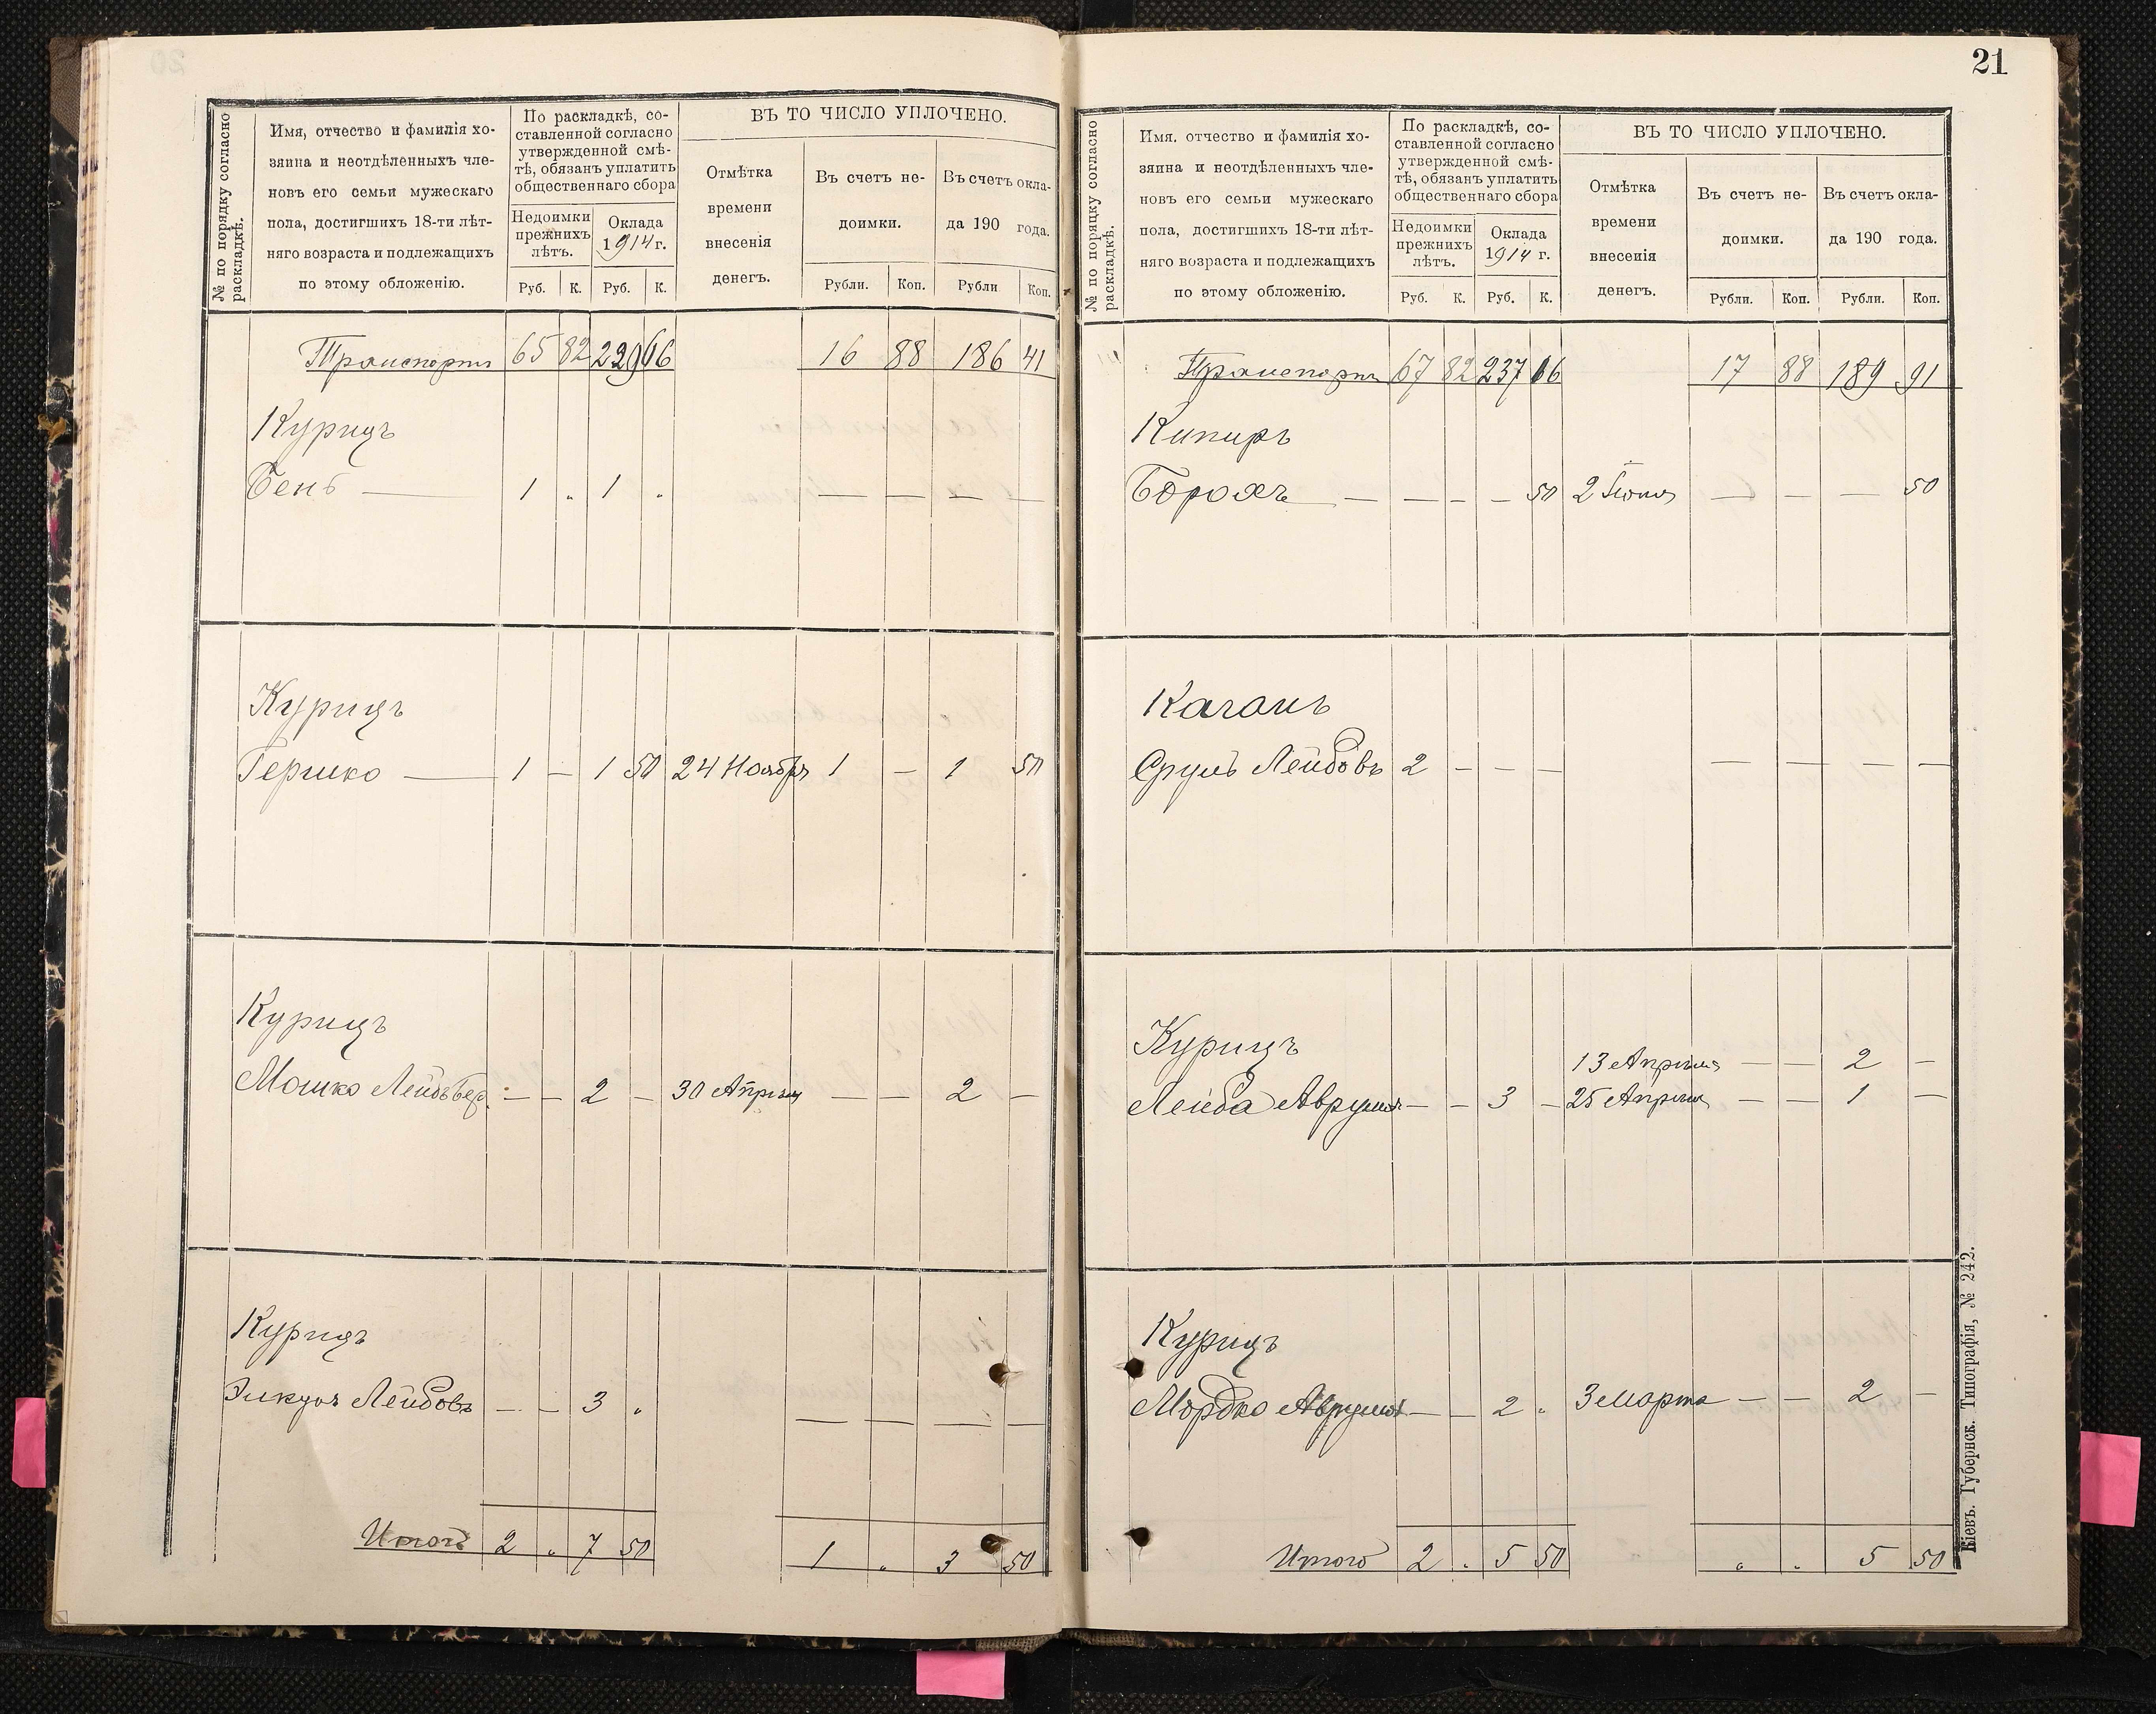 № по порядку согласно
раскладкѣ.
Имя, отчество и фамилія хо-
зяина и неотдѣленныхъ чле-
новъ его семьи мужескаго
пола, достигшихъ 18-ти лѣт-
няго возраста и подлежащихъ
по этому обложенію.
По раскладкѣ, со-
ставленной согласно
утвержденной смѣ-
тѣ, обязанъ уплатить
общественнаго сбора
Недоимки
прежнихъ
лѣтъ.
Оклада
1914 г.
Руб. К. Руб. К.
ВЪ ТО ЧИСЛО УПЛОЧЕНО.
Отмѣтка
времени
внесенія
денегъ.
Въ счетъ не-
доимки.
Въ счетъ окла-
да 190 года.
Рубли. Коп. Рубли Коп.
Транспортъ 65 82 229 66 16 88 186 41
Курицъ
Бень — 1 „ 1 „ — — — —
Курицъ
Гершко — 1 — 1 50 24 Ноября 1 — 1 50
Курицъ
Мошко Лейбъ Бер. — — 2 — 30 Апрѣля — — 2 —
Курицъ
Лейбовъ — — 3 „ — — — —
Итого 2 „ 7 50 1 „ 3 50
21
№ по порядку согласно
раскладкѣ.
Имя, отчество и фамилія хо-
зяина и неотдѣленныхъ чле-
новъ его семьи мужескаго
пола, достигшихъ 18-ти лѣт-
няго возраста и подлежащихъ
по этому обложенію.
По раскладкѣ, со-
ставленной согласно
утвержденной смѣ-
тѣ, обязанъ уплатить
общественнаго сбора
Недоимки
прежнихъ
лѣтъ.
Оклада
1914 г.
Руб. К. Руб. К.
ВЪ ТО ЧИСЛО УПЛОЧЕНО.
Отмѣтка
времени
внесенія
денегъ.
Въ счетъ не-
доимки.
Въ счетъ окла-
да 190 года.
Рубли. Коп. Рубли. Коп.
Транспортъ 67 82 237 16 17 88 189 91
Кипиръ
Борохъ — — — — 50 2 Іюня — — — 50
Каганъ
Сруль Лейбовъ 2 — — — — — — —
Курицъ
13 Апрѣля — — 2 —
Лейба Аврумов — — 3 — 25 Апрѣля — — 1 —
Курицъ
Мордко Аврумов — — 2 „ 3 Марта — — 2 —
Итого 2 „ 5 50 „ „ 5 50
Кіевъ. Губернск. Типографія, № 242.